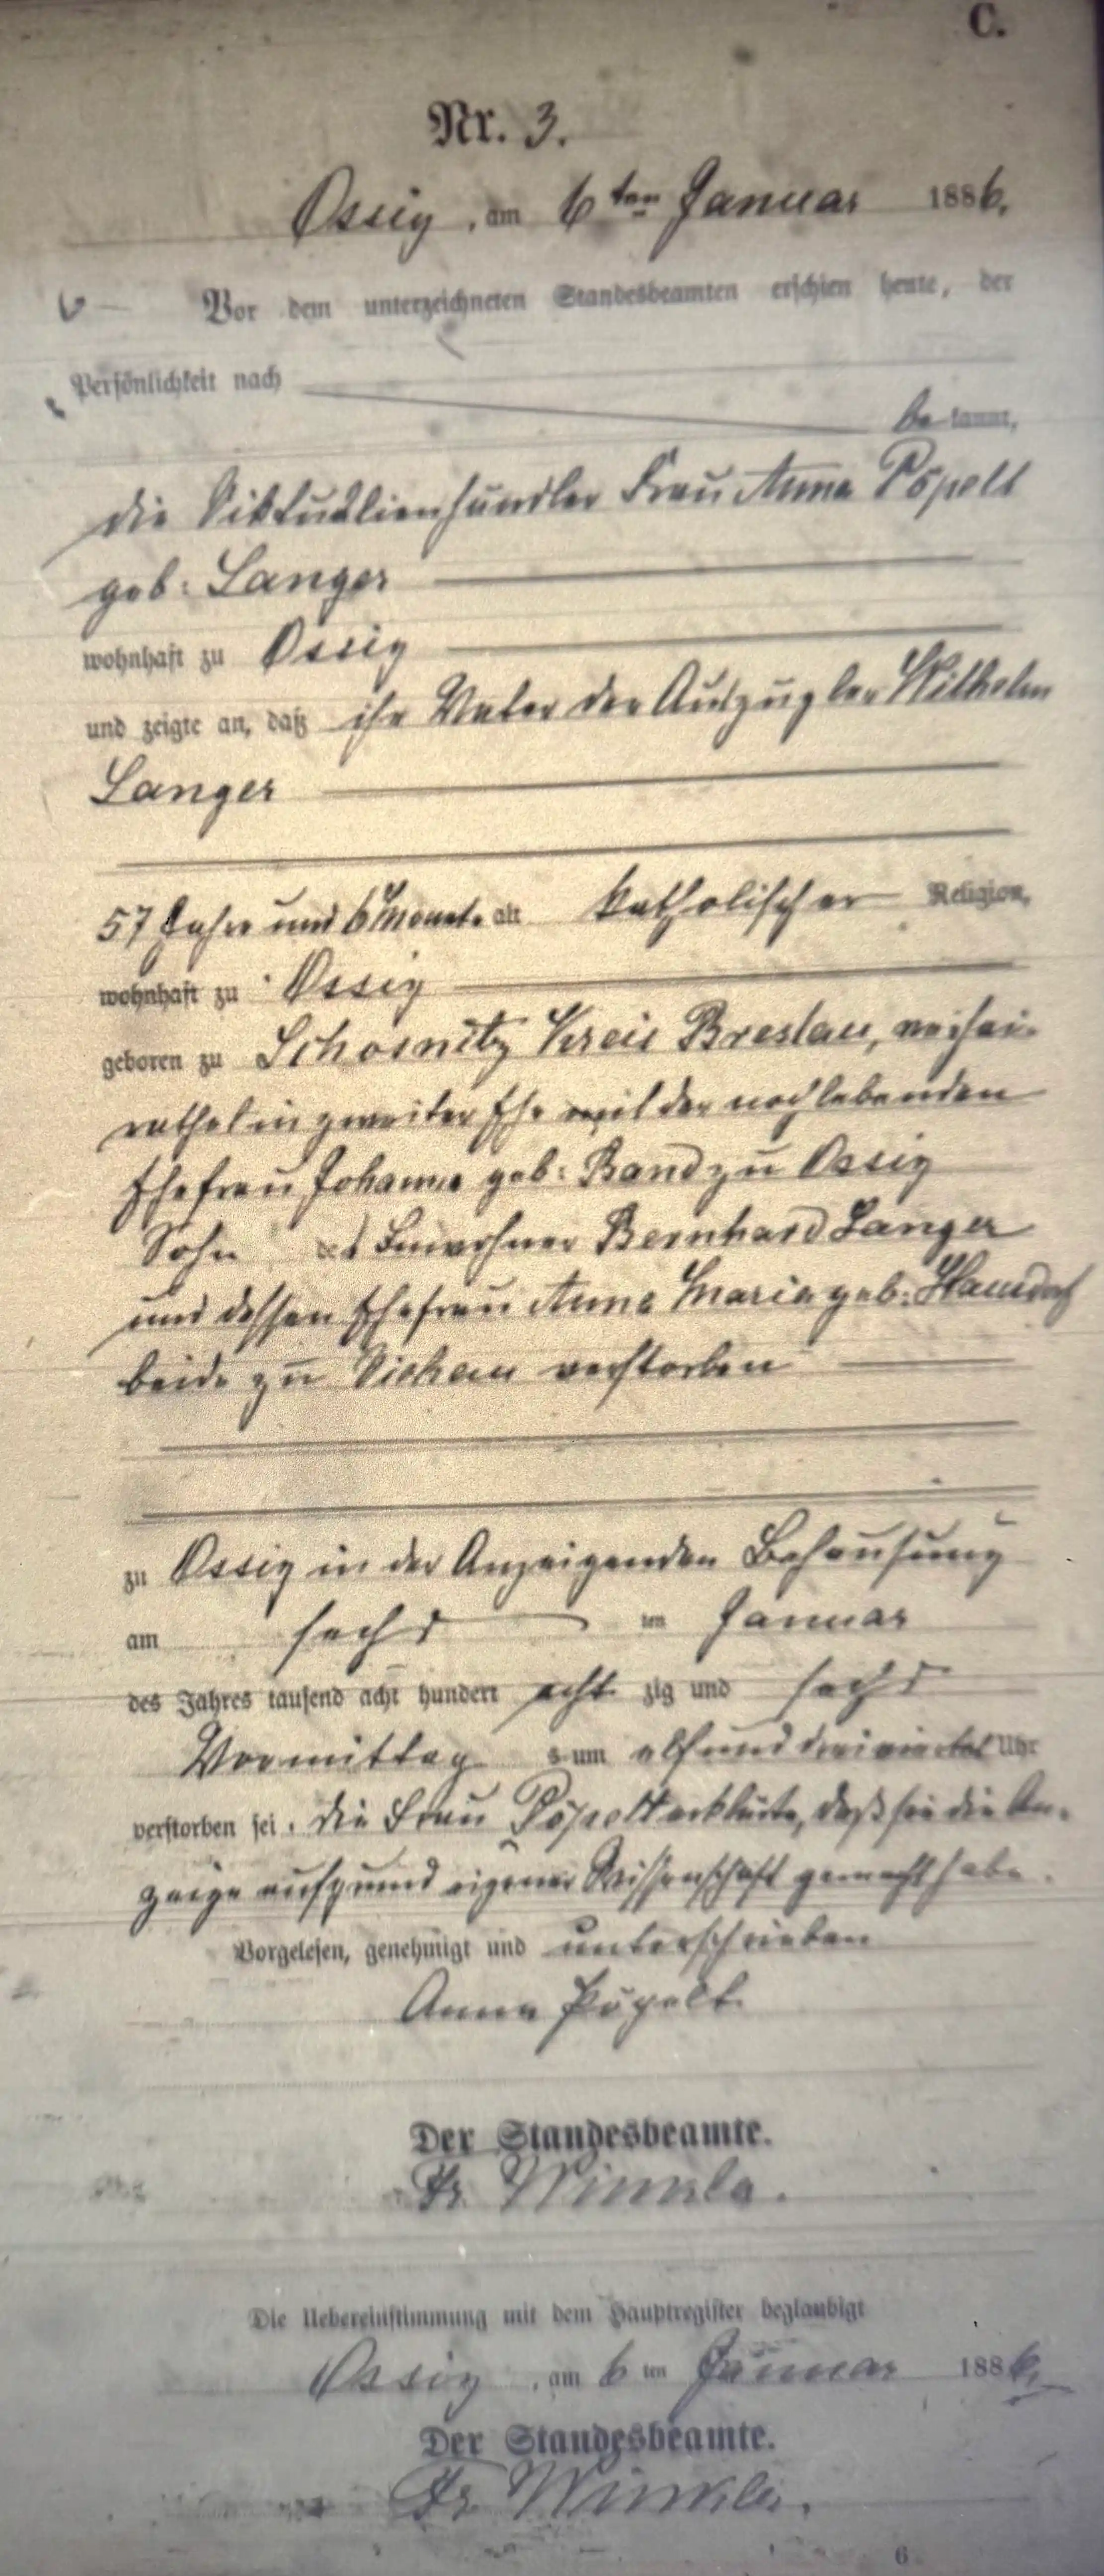 C.
Nr. 3.
Ossig, am 6ten Januar 1886.
Vor dem unterzeichneten Standesbeamten erschien heute, der
Persönlichkeit nach
bekannt,
die Viktualienhändler Frau Anna Pöpelt
geb: Langer
wohnhaft zu Ossig
und zeigte an, daß ihr Vater der Auszügler Wilhelm
Langer
57 Jahre und 6 Monate alt katholischer Religion,
wohnhaft zu Ossig
geboren zu Schosnitz Kreis Breslau, verhei-
rathet in zweiter Ehe mit der noch lebenden
Ehefrau Johanna geb: Band zu Ossig
Sohn des Einwohner Bernhard Langer
und dessen Ehefrau Anna Maria geb:
beide zu Viehau verstorben
zu Ossig in der Anzeigenden Behausung
am sechs ten Januar
des Jahres tausend acht hundert acht zig und sechs
Vormittag s um elf und dreiviertel Uhr
verstorben sei. Die Frau Pöpelt erklärte, daß sie die An-
zeige auf grund eigener Wissenschaft gemacht habe.
Vorgelesen, genehmigt und unterschrieben
Anna Pöpelt
Der Standesbeamte.
Fr. Winkler.
Die Uebereinstimmung mit dem Hauptregister beglaubigt
Ossig, am 6ten Januar 1886.
Der Standesbeamte.
Fr. Winkler.
6